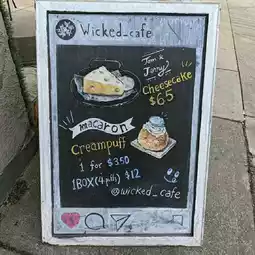 Wicked_cafe
Tom &
Jerry
Cheesecake
$65
macaron
Creampuff
1 for $350
1BOX(4 pcs) $12
@wicked_cafe